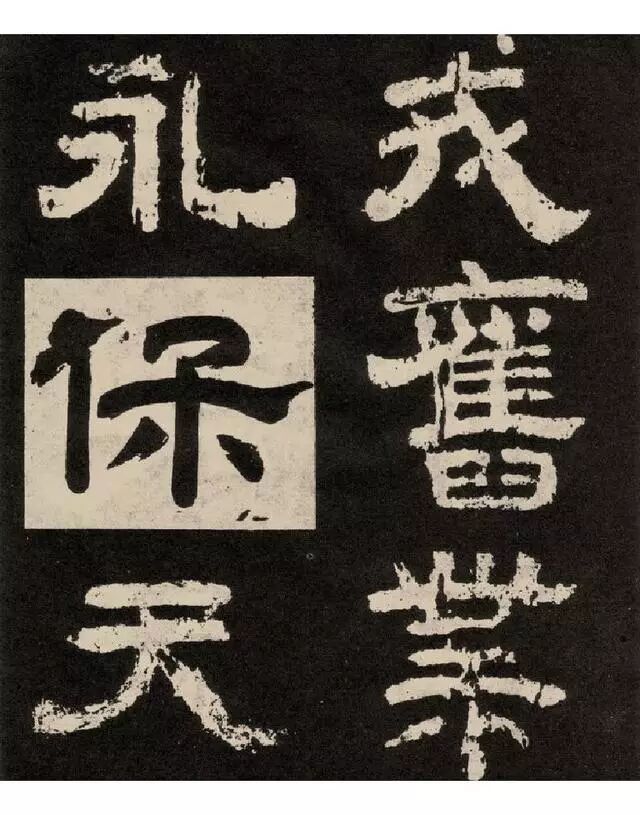 戎舊業
永保天